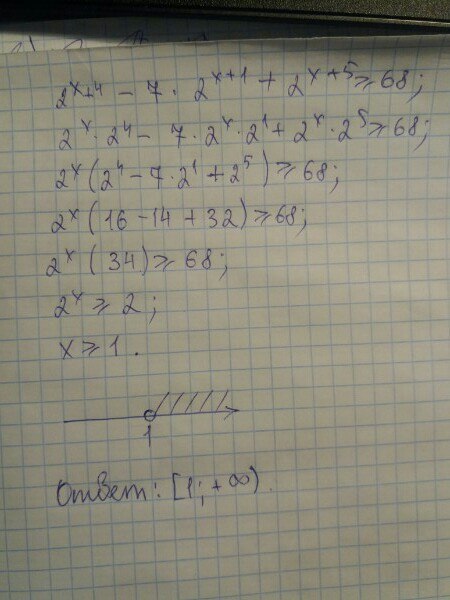 2^{x+4} - 7 · 2^{x+1} + 2^{x+5} ⩾ 68;
2^x · 2^4 - 7 · 2^x · 2^1 + 2^x · 2^5 ⩾ 68;
2^x (2^4 - 7 · 2^1 + 2^5) ⩾ 68;
2^x (16 - 14 + 32) ⩾ 68;
2^x (34) ⩾ 68;
2^x ⩾ 2;
x ⩾ 1.
1
Ответ: [1; +∞).